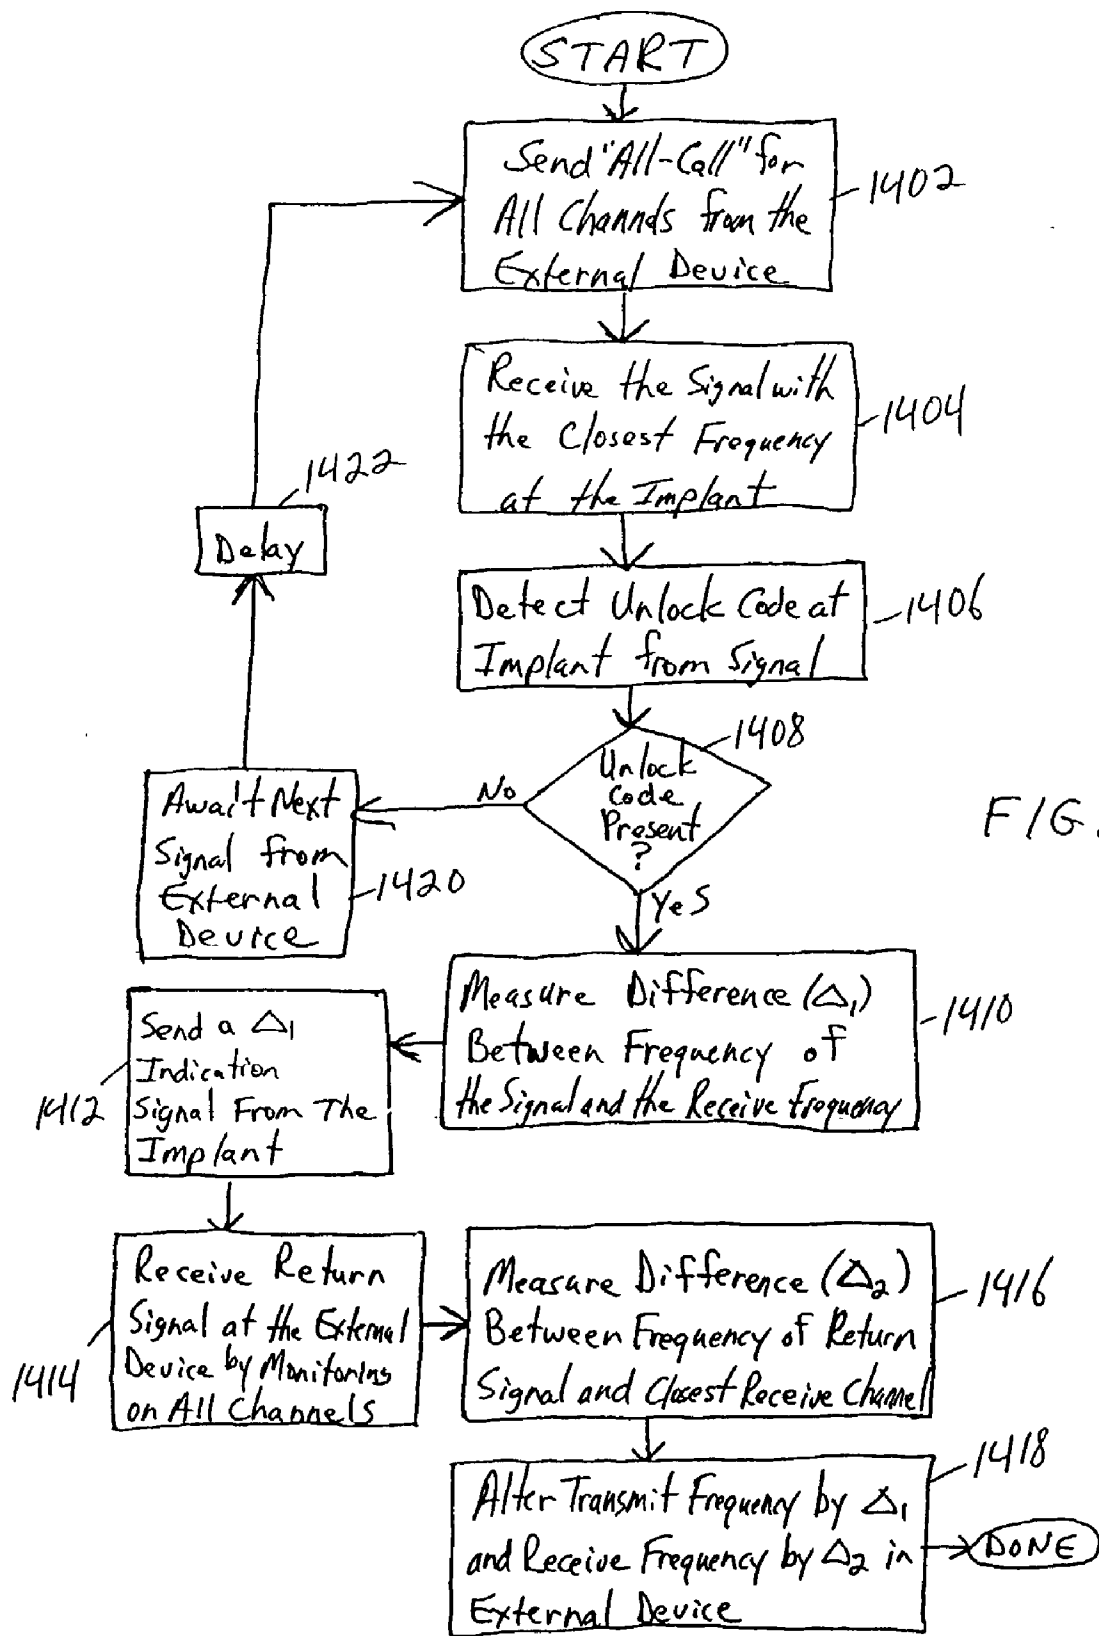 START
Send "All-Call" for
All Channels from the
External Device
1402
Receive the Signal with
the Closest Frequency
at the Implant
1404
1422
Delay
Detect Unlock Code at
Implant from Signal
1406
1408
Unlock
Code
Present
?
No
Await Next
Signal from
External
Device
1420
FIG.
Yes
Measure Difference (△₁)
Between Frequency of
the Signal and the Receive Frequency
1410
Send a △₁
Indication
Signal From The
Implant
1412
Receive Return
Signal at the External
Device by Monitoring
on All Channels
1414
Measure Difference (△₂)
Between Frequency of Return
Signal and Closest Receive Channel
1416
Alter Transmit Frequency by △₁
and Receive Frequency by △₂ in
External Device
1418
DONE